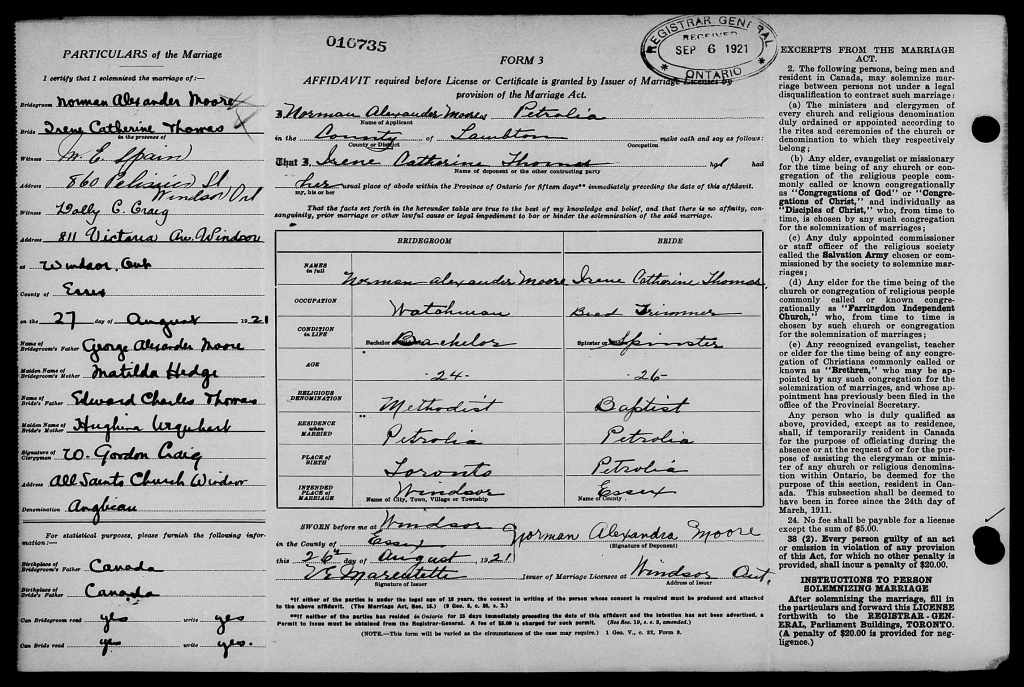 PARTICULARS of the Marriage
I certify that I solemnized the marriage of:—
Bridegroom Norman Alexander Moore
Bride Irene Catherine Thomas
in the presence of
Witness M. E. Spain
Address 860 Pelissier St
Windsor Ont
Witness Dolly C. Craig
Address 811 Victoria Av. Windsor
at Windsor, Ont
County of Essex
on the 27 day of August 1921
Name of Bridegroom's Father George Alexander Moore
Maiden Name of Bridegroom's Mother Matilda Hedge
Name of Bride's Father Edward Charles Thomas
Maiden Name of Bride's Mother Hughina Urquhart
Signature of Clergyman W. Gordon Craig
Address All Saints Church Windsor
Denomination Anglican
For statistical purposes, please furnish the following information:—
Birthplace of Bridegroom's Father Canada
Birthplace of Bride's Father Canada
Can Bride read yes write yes
Can Bride read yes write yes.
016735
REGISTRAR GENERAL
RECEIVED
SEP 6 1921
ONTARIO
FORM 3
AFFIDAVIT required before License or Certificate is granted by Issuer of Marriage Licenses by
provision of the Marriage Act.
I, Norman Alexander Moore, Petrolia
Name of Applicant
in the County of Lambton make oath and say as follows:
County or District Occupation
That I, Irene Catherine Thomas had
Name of deponent or the other contracting party
her usual place of abode within the Province of Ontario for fifteen days** immediately preceding the date of this affidavit.
my, his or her
That the facts set forth in the hereunder table are true to the best of my knowledge and belief, and that there is no affinity, con-
sanguinity, prior marriage or other lawful cause or legal impediment to bar or hinder the solemnization of the said marriage.
BRIDEGROOM BRIDE
NAMES in full Norman Alexander Moore Irene Catherine Thomas
OCCUPATION Watchman Bead Trimmer
CONDITION in LIFE Bachelor Bachelor Spinster or Spinster
AGE -24- -26-
RELIGIOUS DENOMINATION Methodist Baptist
RESIDENCE when MARRIED Petrolia Petrolia
PLACE OF BIRTH Toronto Petrolia
INTENDED PLACE OF MARRIAGE Windsor Essex
Name of City, Town, Village or Township Name of County
SWORN before me at Windsor
in the County of Essex Norman Alexandra Moore
(Signature of Deponent)
this 26th day of August 1921
Issuer of Marriage Licenses at Windsor Ont.
Signature of Issuer Address of Issuer
*If either of the parties is under the legal age of 18 years, the consent in writing of the person whose consent is required must be produced and attached
to the above affidavit. (The Marriage Act, Sec. 15.)
**If neither of the parties has resided in Ontario for 15 days immediately preceding the date of this affidavit and the intention has not been advertised, a
Permit to Issue must be obtained from the Registrar-General. A fee of $5.00 is charged for such permit.
(NOTE.—This form will be varied as the circumstances of the case may require.) 1 Geo. V., c. 32, Form 3.
EXCERPTS FROM THE MARRIAGE
ACT.
2. The following persons, being men and
resident in Canada, may solemnize mar-
riage between persons not under a legal
disqualification to contract such marriage:
(a) The ministers and clergymen of
every church and religious denomination
duly ordained or appointed according to
the rites and ceremonies of the church or
denomination to which they respectively
belong;
(b) Any elder, evangelist or missionary
for the time being of any church or con-
gregation of the religious people com-
monly called or known congregationally
as "Congregations of God" or "Congre-
gations of Christ," and individually as
"Disciples of Christ," who, from time to
time, is chosen by any such congregation
for the solemnization of marriages;
(c) Any duly appointed commissioner
or staff officer of the religious society
called the Salvation Army chosen or com-
missioned by the society to solemnize mar-
riages;
(d) Any elder for the time being of the
church or congregation of religious people
commonly called or known congre-
gationally as "Farringdon Independent
Church," who, from time to time is
chosen by such church or congregation
for the solemnization of marriages;
(e) Any recognized evangelist, teacher
or elder for the time being of any congre-
gation of Christians commonly called or
known as "Brethren," who may be ap-
pointed by any such congregation for the
solemnization of marriages, and whose ap-
pointment has previously been filed in the
office of the Provincial Secretary.
Any person who is duly qualified as
above, provided, except as to residence,
shall, if temporarily resident in Canada
for the purpose of officiating during the
absence or at the request of or for the pur-
pose of assisting the clergyman or minis-
ter of any church or religious denomina-
tion within Ontario, be deemed for the
purpose of this section, resident in Can-
ada. This subsection shall be deemed to
have been in force since the 24th day of
March, 1911.
24. No fee shall be payable for a license
except the sum of $5.00.
38 (2). Every person guilty of an act
or omission in violation of any provision
of this Act, for which no other penalty is
provided, shall incur a penalty of $20.00.
INSTRUCTIONS TO PERSON
SOLEMNIZING MARRIAGE
After solemnizing the marriage, fill in
the particulars and forward this LICENSE
forthwith to the REGISTRAR-GEN-
ERAL, Parliament Buildings, TORONTO.
(A penalty of $20.00 is provided for neg-
ligence.)